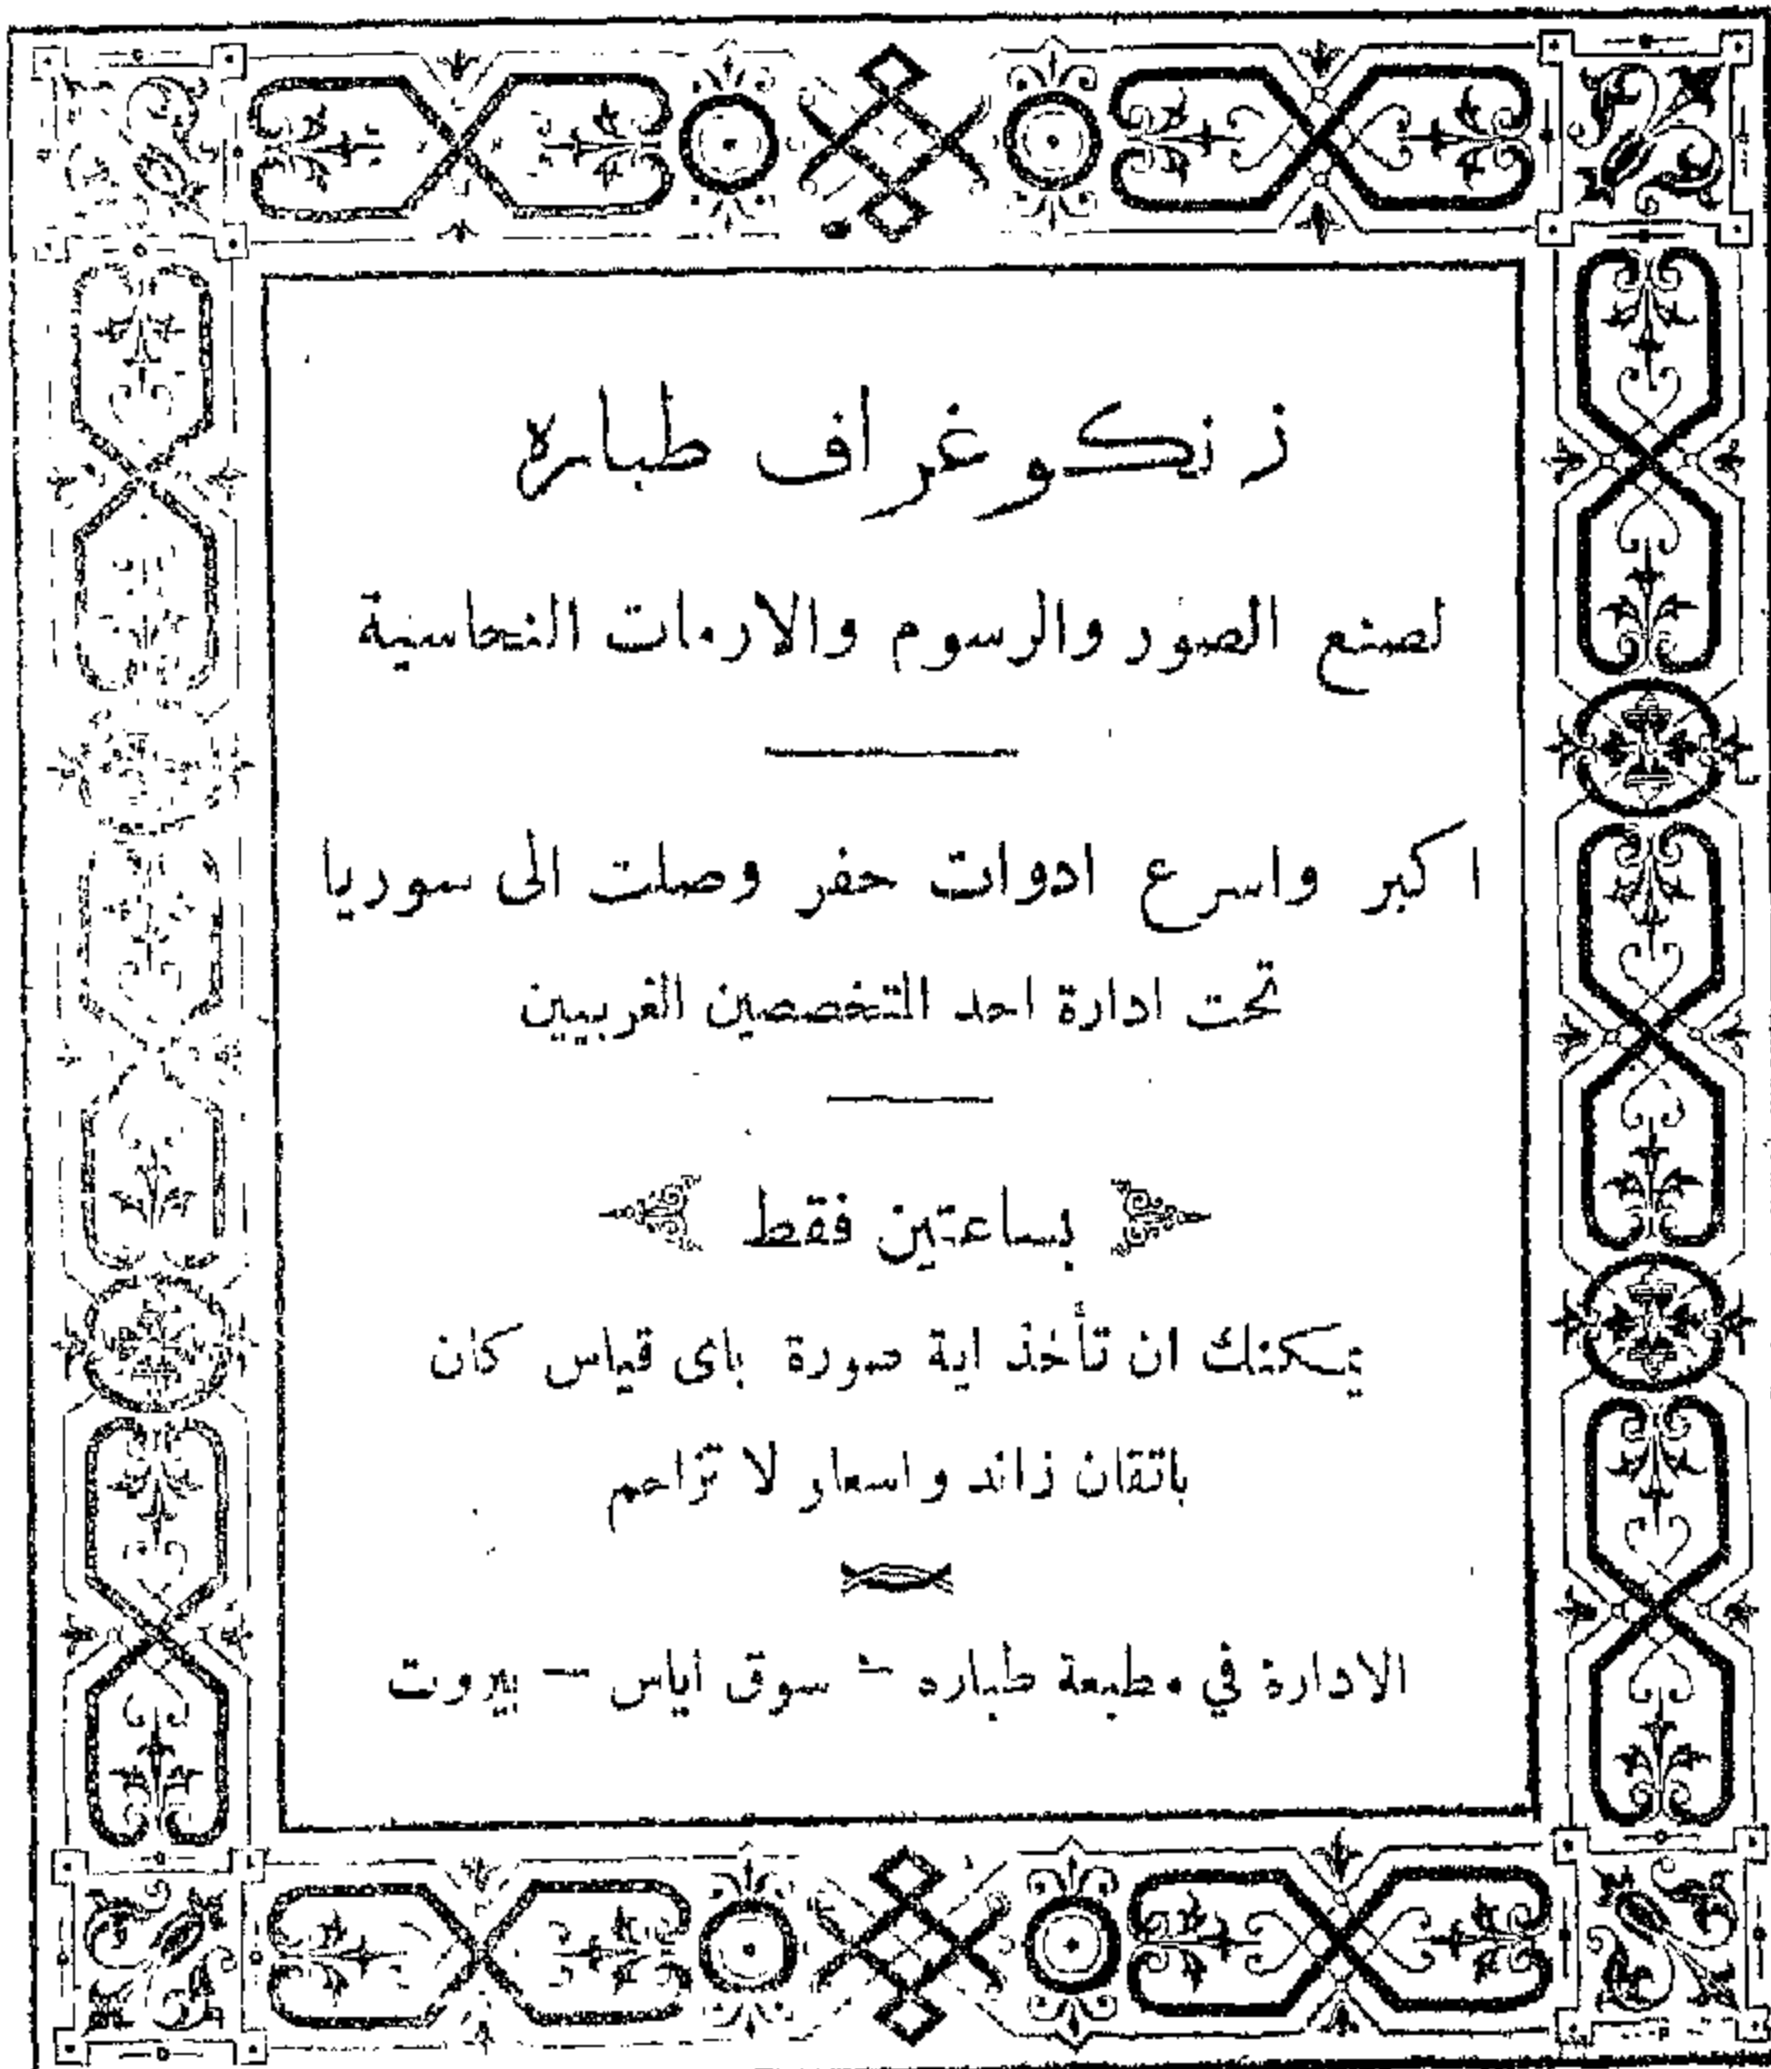 زنكوغراف طباره
لصنع الصور والرسوم والارمات النحاسية
اكبر واسرع ادوات حفر وصلت الى سوريا
تحت ادارة احد المتخصصين الغربيين
بساعتين فقط
يمكنك ان تأخذ اية صورة باى قياس كان
باتقان زائد واسعار لا تزاحم
الادارة في مطبعة طباره - سوق اياس - بيروت